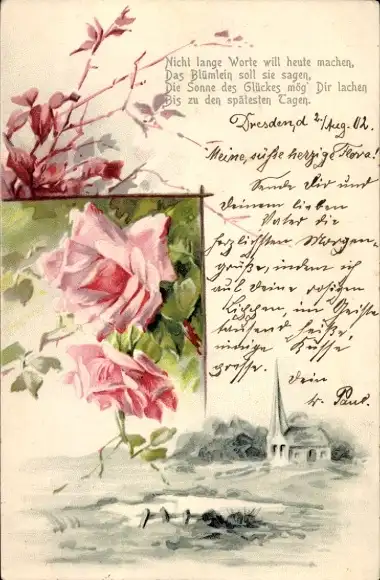 Nicht lange Worte will heute machen,
Das Blümlein soll sie sagen,
Die Sonne des Glückes mög' Dir lachen
Bis zu den spätesten Tagen.
Dresden, d 2/Aug. 02.
Meine, süße herzige Flora!
Sende Dir und
Deinem lieben
Vater die
herzlichsten Morgen-
grüße, indem ich
auf Deine rosigen
Lippchen, im Geiste
tausend heiße,
innige Küsse
presse.
Dein
tr. Paul.